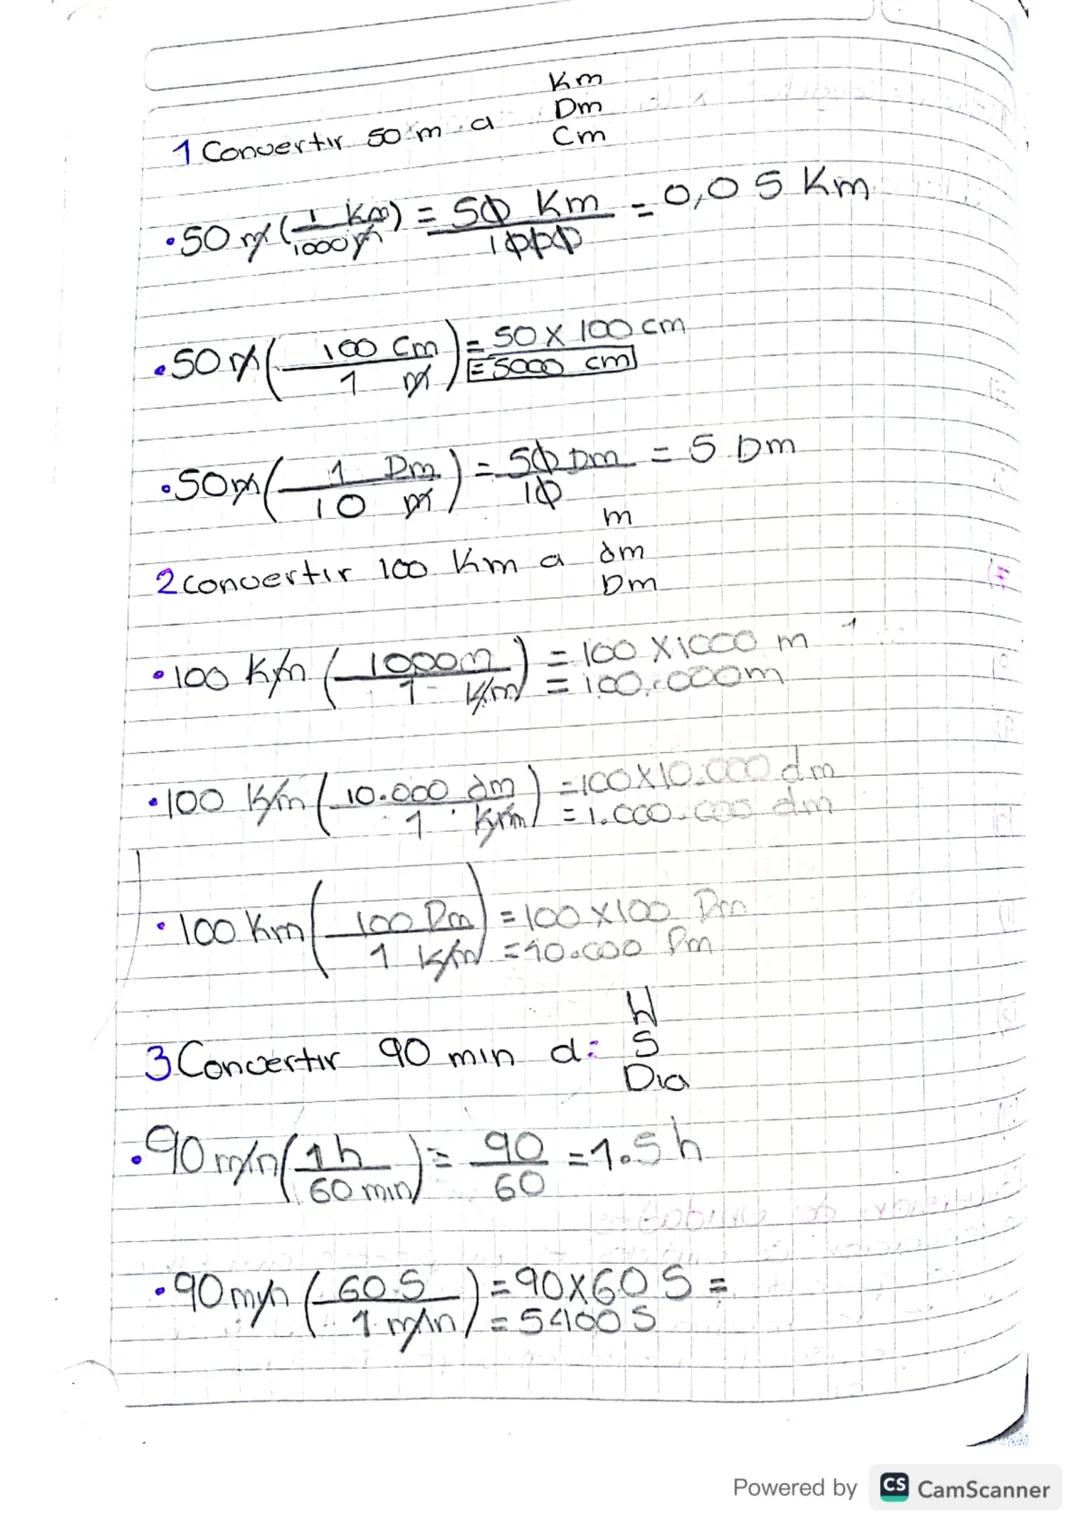 Km
Dm
1 Convertir 50 m a Cm
• 50 m (1 Km / 1000 m) = 50 Km / 1000 = 0,05 Km
• 50 m (100 Cm / 1 m) = 50 X 100 cm
= 5000 cm
• 50 m (1 Dm / 10 m) = 50 Dm / 10 = 5 Dm
m
2 convertir 100 Km a dm
Dm
• 100 Km (1000 m / 1 Km) = 100 X 1000 m
= 100.000 m
• 100 Km (10.000 dm / 1 Km) = 100 X 10.000 dm
= 1.000.000 dm
• 100 Km (100 Dm / 1 Km) = 100 X 100 Dm
= 10.000 Dm
H
3 Convertir 90 min a: S
Dia
• 90 min (1 h / 60 min) = 90 / 60 = 1.5 h
• 90 min (60 S / 1 min) = 90 X 60 S =
= 5400 S
Powered by CS CamScanner